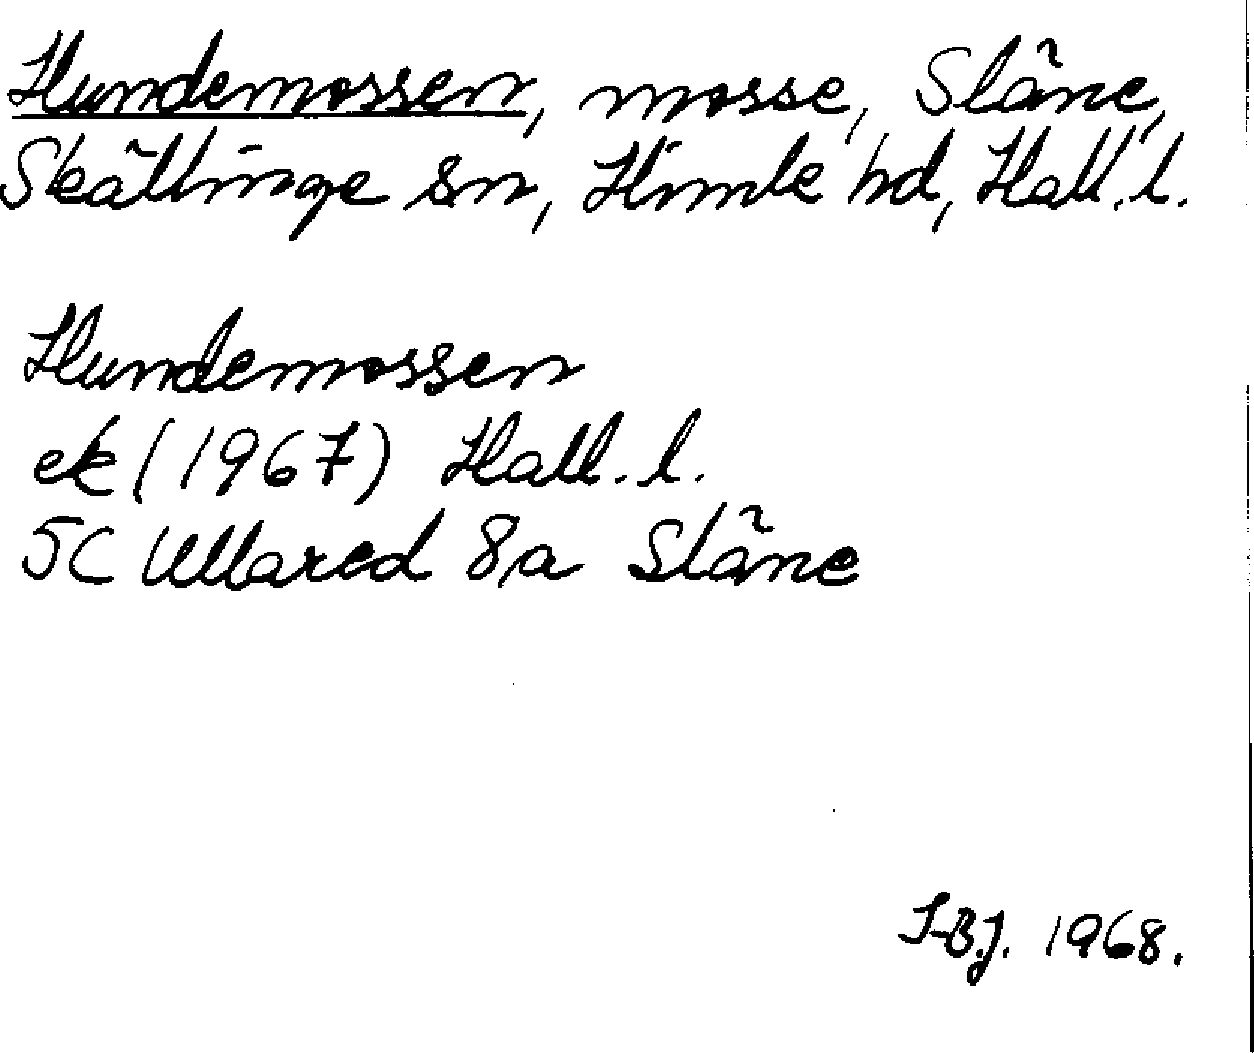 Hundemossen, mosse, Släne,
Skällinge sn, Himle hd, Hall. l.
Hundemossen
ek (1967) Hall. l.
5C Ullared 8a Släne
I-B.J. 1968.